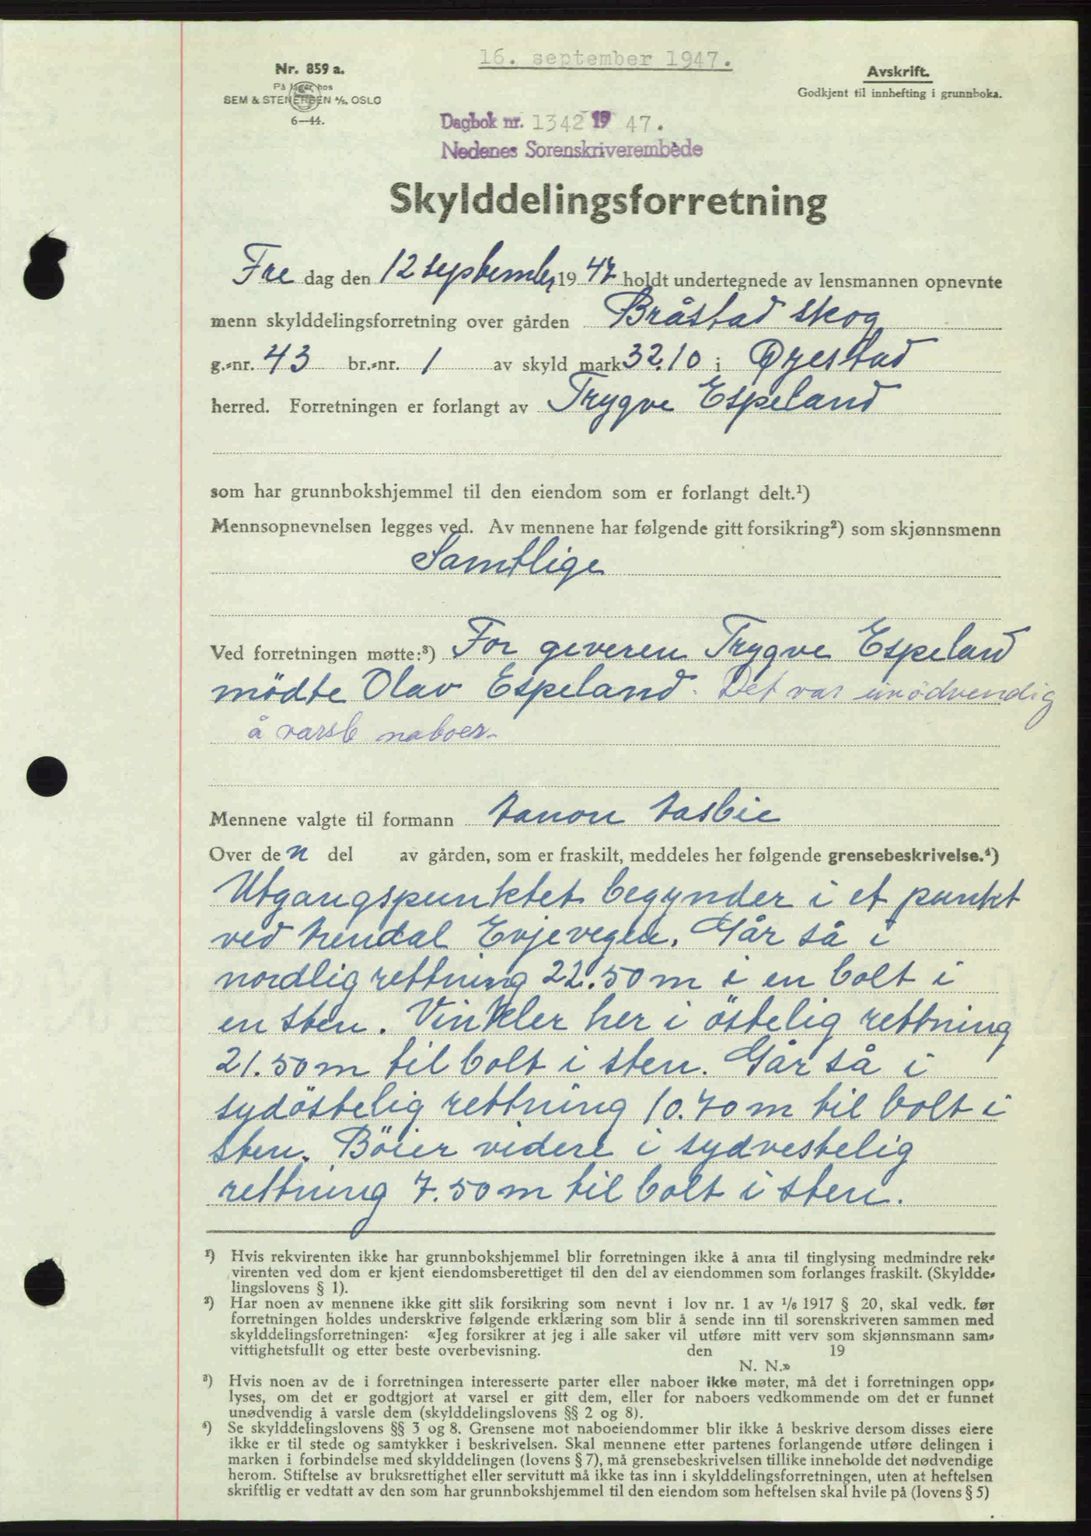 16. september 1947.
Nr. 859 a.
På lager hos
SEM & STENERSEN A/S, OSLO
6—44.
Avskrift.
Godkjent til innhefting i grunnboka.
Dagbok nr. 1342 19 47.
Nedenes Sorenskriverembede
Skylddelingsforretning
Fre dag den 12 september 19 47 holdt undertegnede av lensmannen opnevnte
menn skylddelingsforretning over gården Bråstad skog
g.-nr. 43 br.-nr. 1 av skyld mark 32.10 i Øyestad
herred. Forretningen er forlangt av Trygve Espeland
som har grunnbokshjemmel til den eiendom som er forlangt delt.¹)
Mennsopnevnelsen legges ved. Av mennene har følgende gitt forsikring²) som skjønnsmenn
Samtlige
Ved forretningen møtte:³) For geveren Trygve Espeland
mödte Olav Espeland. Det var unödvendig
å varsle naboer.
Mennene valgte til formann
Over de n del av gården, som er fraskilt, meddeles her følgende grensebeskrivelse.⁴)
Utgangspunktet begynder i et punkt
ved Arendal Evjevegen. Går så i
nordlig rettning 22.50 m i en bolt i
en sten. Vinkler her i östelig rettning
21.50 m til bolt i sten. Går så i
sydöstelig rettning 10.70 m til bolt i
sten. Böier videre i sydvestelig
rettning 7.50 m til bolt i sten.
¹) Hvis rekvirenten ikke har grunnbokshjemmel blir forretningen ikke å anta til tinglysing medmindre rek-
virenten ved dom er kjent eiendomsberettiget til den del av eiendommen som forlanges fraskilt. (Skyldde-
lingslovens § 1).
²) Har noen av mennene ikke gitt slik forsikring som nevnt i lov nr. 1 av 1/6 1917 § 20, skal vedk. før
forretningen holdes underskrive følgende erklæring som blir å sende inn til sorenskriveren sammen med
skylddelingsforretningen: «Jeg forsikrer at jeg i alle saker vil utføre mitt verv som skjønnsmann sam-
vittighetsfullt og etter beste overbevisning. den 19
N. N.»
³) Hvis noen av de i forretningen interesserte parter eller naboer ikke møter, må det i forretningen opp-
lyses, om det er godtgjort at varsel er gitt dem, eller for naboers vedkommende om det er funnet
unødvendig å varsle dem (skylddelingslovens §§ 2 og 8).
⁴) Se skylddelingslovens §§ 3 og 8. Grensene mot naboeiendommer blir ikke å beskrive dersom disses eiere
ikke er til stede og samtykker i beskrivelsen. Skal mennene etter partenes forlangende utføre delingen i
marken i forbindelse med skylddelingen (lovens § 7), må grensebeskrivelsen tillike inneholde det nødvendige
herom. Stiftelse av bruksrettighet eller servitutt må ikke tas inn i skylddelingsforretningen, uten at heftelsen
skriftlig er vedtatt av den som har grunnbokshjemmel til den eiendom som heftelsen skal hvile på (lovens § 5)